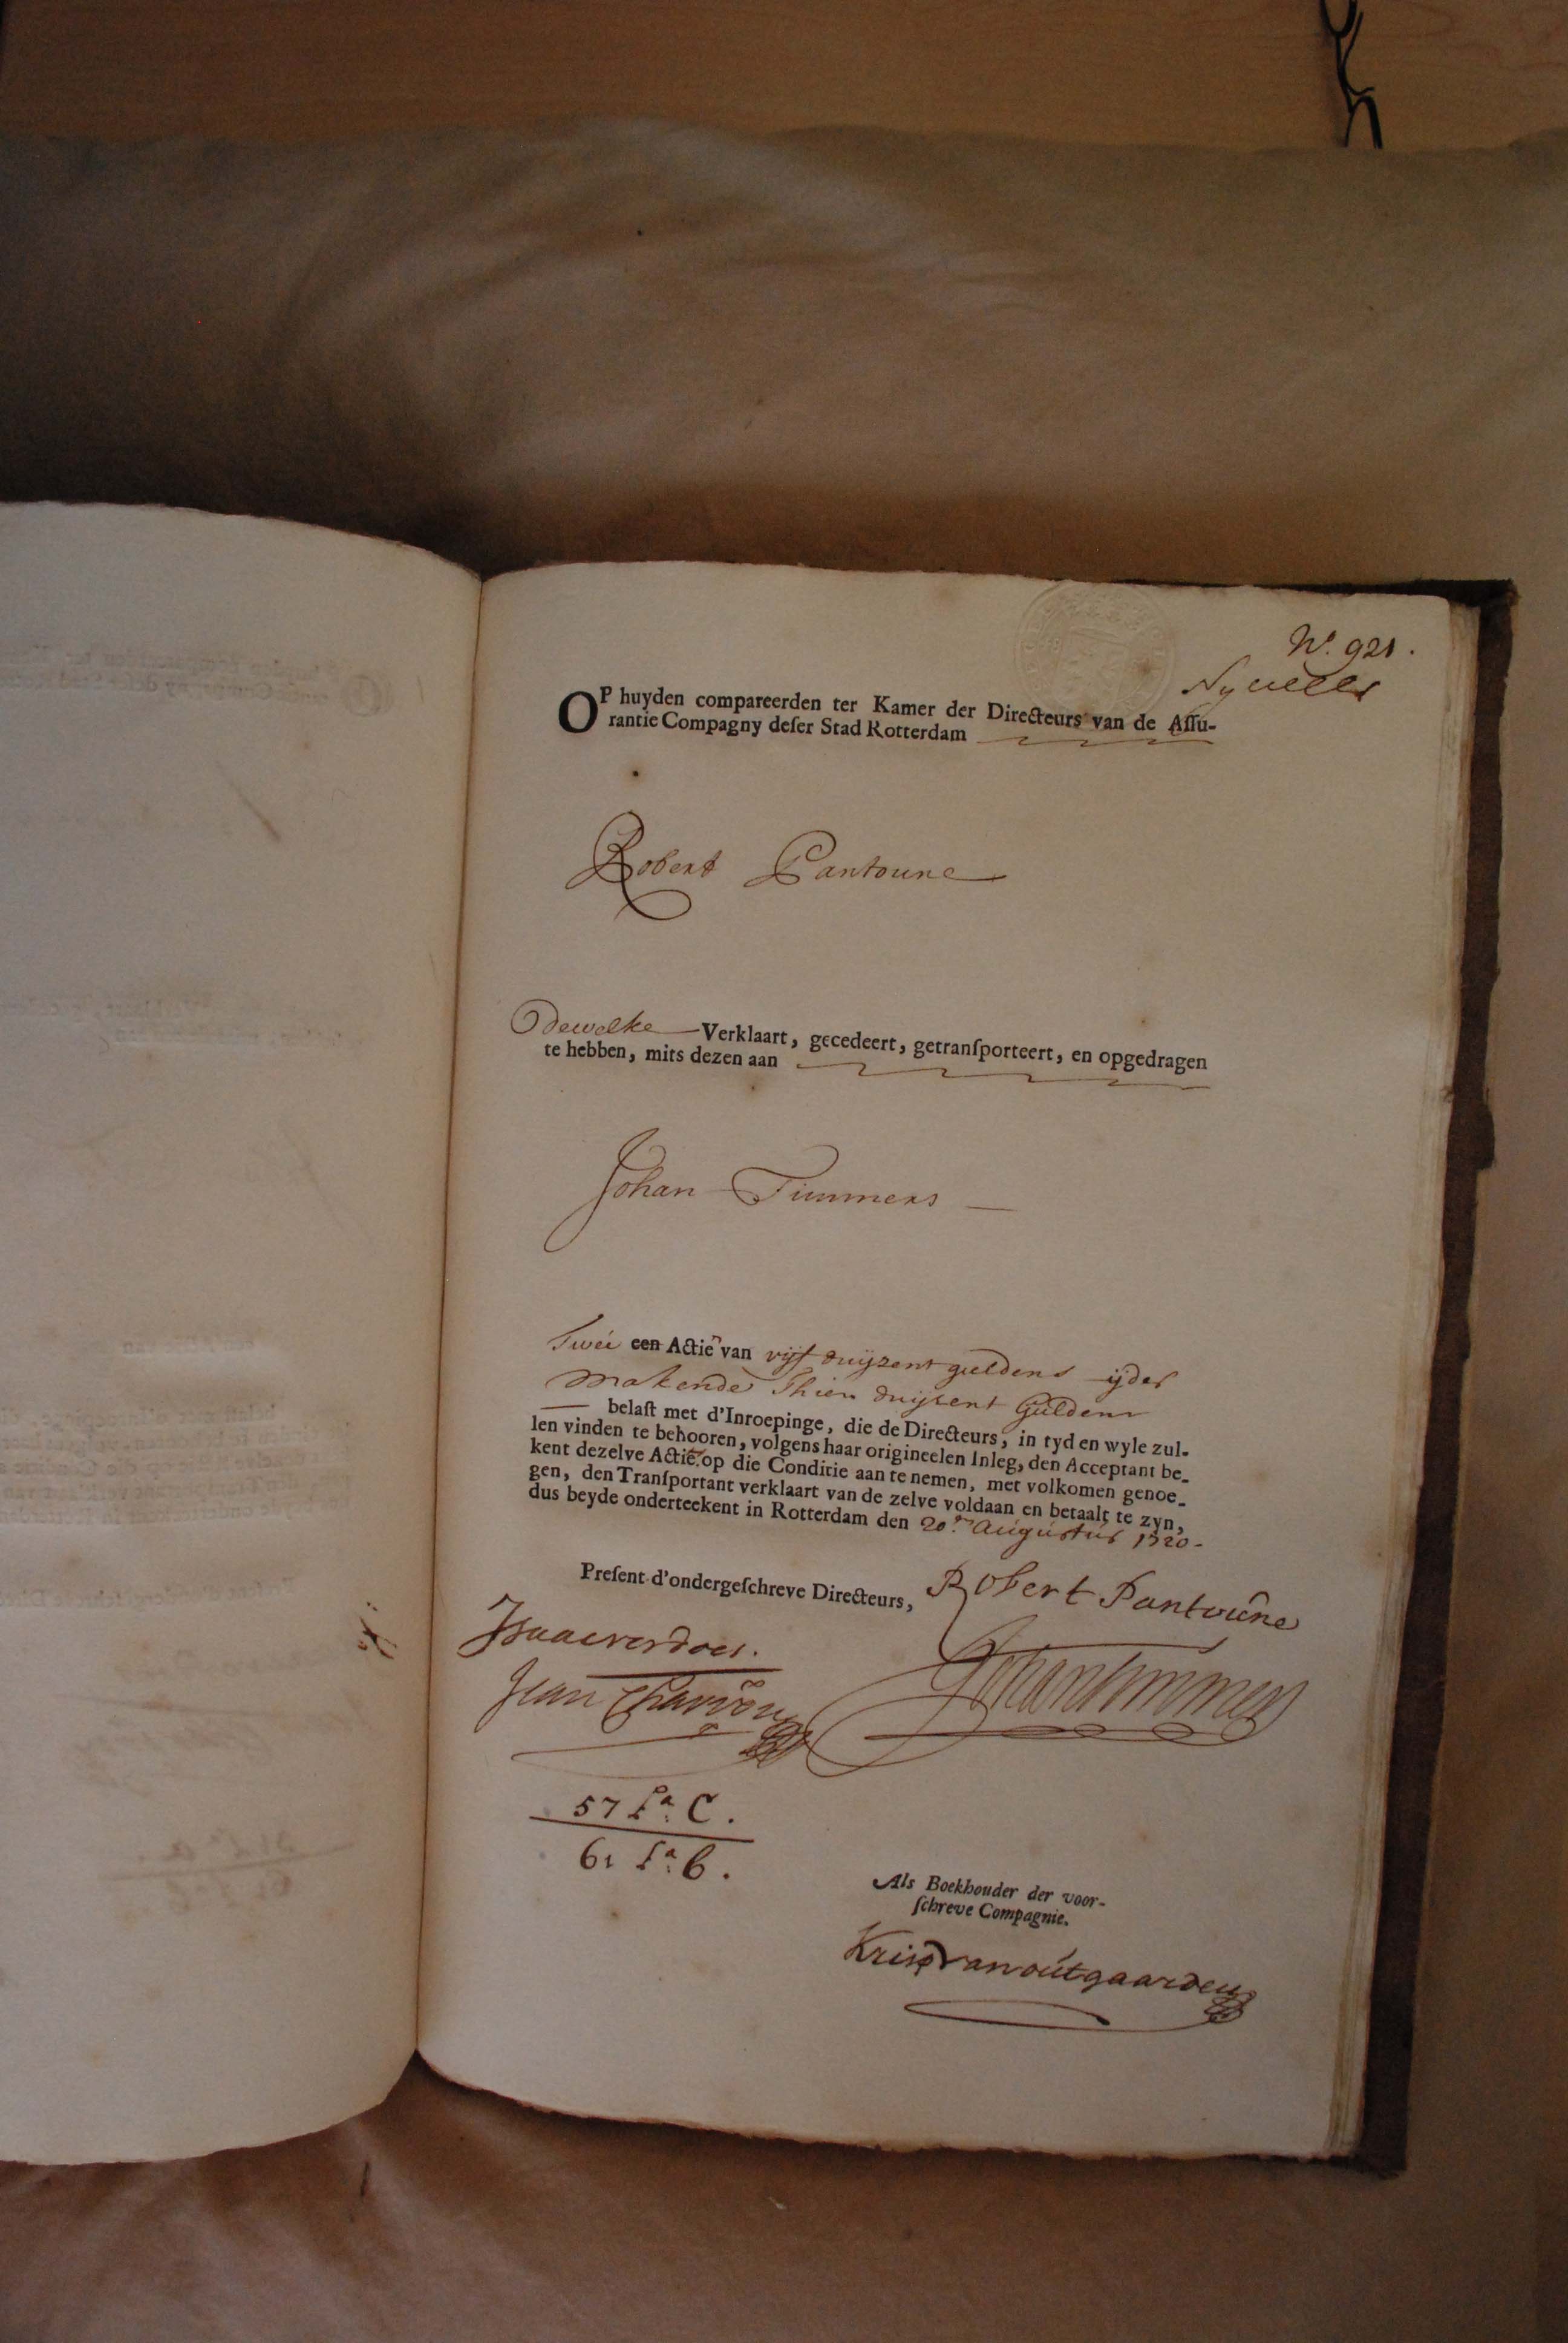 No. 921.
Nyvelt
OP huyden compareerden ter Kamer der Directeurs van de Assu-
rantie Compagny deser Stad Rotterdam
Robert Pantoune
dewelke Verklaart, gecedeert, getransporteert, en opgedragen
te hebben, mits dezen aan
Johan Timmers
Twee een Actien van vijf duijzent guldens ijder
makende Thien duijsent Guldens
belast met d'Inroepinge, die de Directeurs, in tyd en wyle zul-
len vinden te behooren, volgens haar origineelen Inleg, den Acceptant be-
kent dezelve Actie op die Conditie aan te nemen, met volkomen genoe-
gen, den Transportant verklaart van de zelve voldaan en betaalt te zyn,
dus beyde onderteekent in Rotterdam den 20en Augustus 1720-
Present d'ondergeschreve Directeurs,
Robert Pantoune
Isaac verdoes.
Johan Timmers
Jean Charron
57 La. C.
61 La. b.
Als Boekhouder der voor-
schreve Compagnie.
Krisp van outgaarden